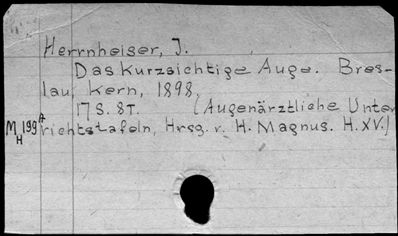 Herrnheiser, J.
Das kurzsichtige Auge. Bres-
lau, Kern, 1898.
17 S. 8T. (Augenärztliche Unter
M 199 A richtstafeln, Hrsg. v. H. Magnus. H. XV.)
H